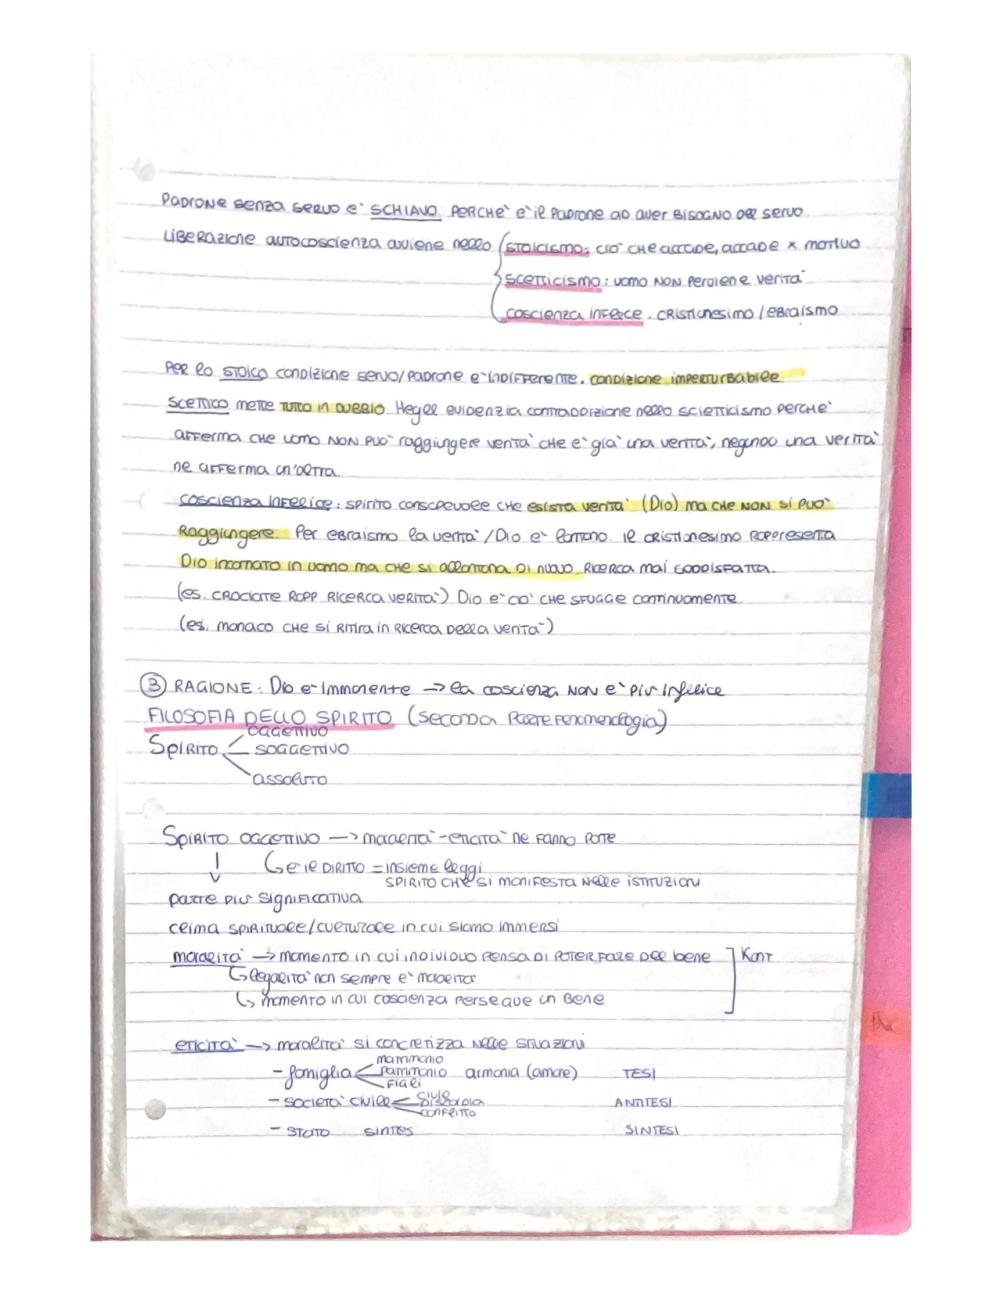 PADRONE senza servo e' SCHIAVO PERCHE' e' il PADRONE AD AVER BISOGNO DEL servo.
LIBERAZIONE AUTOCOSCIENZA avviene nello STOICISMO: CIO' CHE ACCADE, ACCADE x MOTIVO
SCETTICISMO: uomo NON PERVIENE VERITA'
COSCIENZA INFELICE. CRISTIANESIMO / EBRAISMO
PER lo STOICO CONDIZIONE SERVO/PADRONE e' INDIFFERENTE. CONDIZIONE IMPERTURBABILE
SCETTICO METTE TUTTO IN DUBBIO. Hegel evidenzia CONTRADDIZIONE nello SCIETTICISMO PERCHE'
AFFERMA CHE UOMO NON PUO' raggiungere VERITA' CHE e' gia' una VERITA', negando una VERITA'
ne AFFERMA un'ALTRA.
COSCIENZA INFELICE: SPIRITO CONSAPEVOLE CHE ESISTA VERITA' (DIO) MA CHE NON SI PUO'
RAGGIUNGERE. Per EBRAISMO la VERITA'/DIO e' LONTANO. Il CRISTIANESIMO RAPPRESENTA
DIO INCARNATO IN UOMO MA CHE SI ALLONTANA DI NUOVO. RICERCA MAI SODDISFATTA.
(es. CROCIATE RAPP RICERCA VERITA') DIO e' CIO' CHE SFUGGE CONTINUAMENTE
(es. MONACO CHE SI RITIRA IN RICERCA DELLA VERITA')
③ RAGIONE: DIO e' Immanente → la COSCIENZA NON e' PIU' infelice
FILOSOFIA DELLO SPIRITO (SECONDA PARTE FENOMENOLOGIA)
OGGETTIVO
SPIRITO SOGGETTIVO
ASSOLUTO
SPIRITO OGGETTIVO → MORALITA'-ETICITA' NE FANNO PARTE
↓ ↳ e il DIRITTO = INSIEME leggi
SPIRITO CHE SI MANIFESTA NELLE ISTITUZIONI
PARTE PIU' SIGNIFICATIVA
CLIMA SPIRITUALE/CULTURALE IN CUI SIAMO IMMERSI
MORALITA' → MOMENTO IN CUI INDIVIDUO PENSA DI POTER FARE DEL BENE ] KANT
↳ legalita' non sempre e' moralita'
↳ momento in cui COSCIENZA PERSEGUE UN BENE
ETICITA' → MORALITA' SI CONCRETIZZA NELLE SITUAZIONI
MATRIMONIO
- famiglia PATRIMONIO ARMONIA (AMORE) TESI
FIGLI
- SOCIETA' CIVILE TESI ANTITESI
CONFLITTO
- STATO SINTES SINTESI